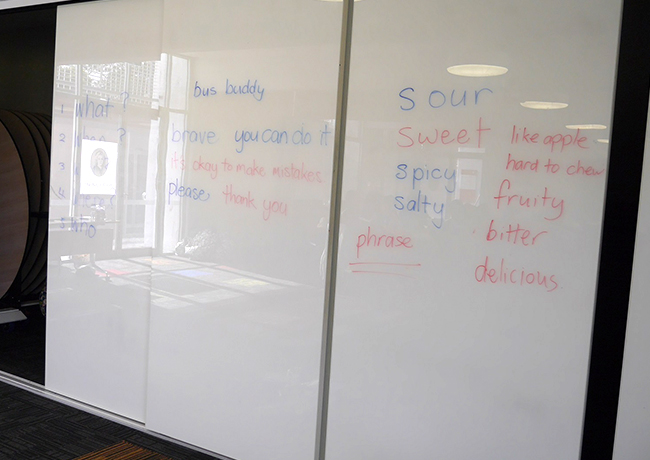 1 what?
2 ?
3
4
5 who
bus buddy
brave you can do it
it's okay to make mistakes
please, thank you
sour
sweet
spicy
salty
phrase
like apple
hard to chew
fruity
bitter
delicious